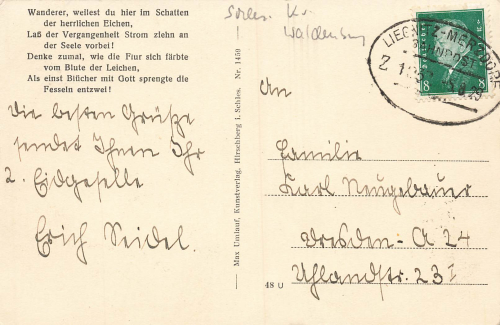 Wanderer, weilest du hier im Schatten
der herrlichen Eichen,
Laß der Vergangenheit Strom ziehn an
der Seele vorbei!
Denke zumal, wie die Flur sich färbte
vom Blute der Leichen,
Als einst Blücher mit Gott sprengte die
Fesseln entzwei!
Die besten Grüße
sendet Ihnen Ihr
2. Eidgeselle
Erich Seidel.
Max Umlauf, Kunstverlag, Hirschberg i. Schles. Nr. 1459
Schles. Kr.
Waldenburg
LIEGNITZ-MERZDORF
BAHNPOST
Z
DEUTSCHES REICH
8 8
An
Familie
Karl Neugebauer
Dresden-A 24
Uhlandstr. 23 I
48 U